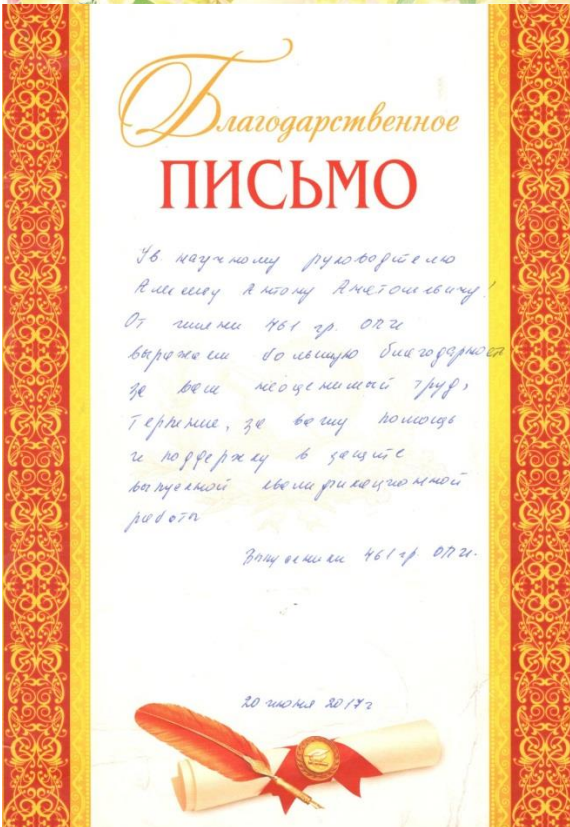 Благодарственное
ПИСЬМО
Ув. научному руководителю
Антону Анатольевичу!
От имени 461 гр. ОПИ
выражаем большую благодарность
за ваш неоценимый труд,
терпение, за вашу помощь
и поддержку в защите
выпускной квалификационной
работы
Выпускники 461 гр ОПИ.
20 июня 2017г